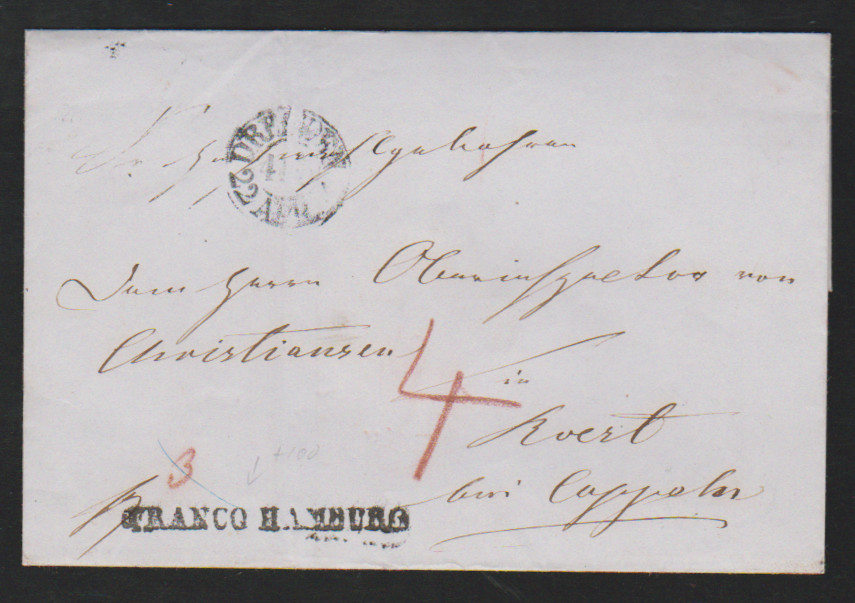 DRESDEN
22 APR.
Sr Hochwohlgebohren
Dem Herrn Oberinspector von
Christiansen
in
4
Roest
bei Cappeln
3
+100
FRANCO HAMBURG